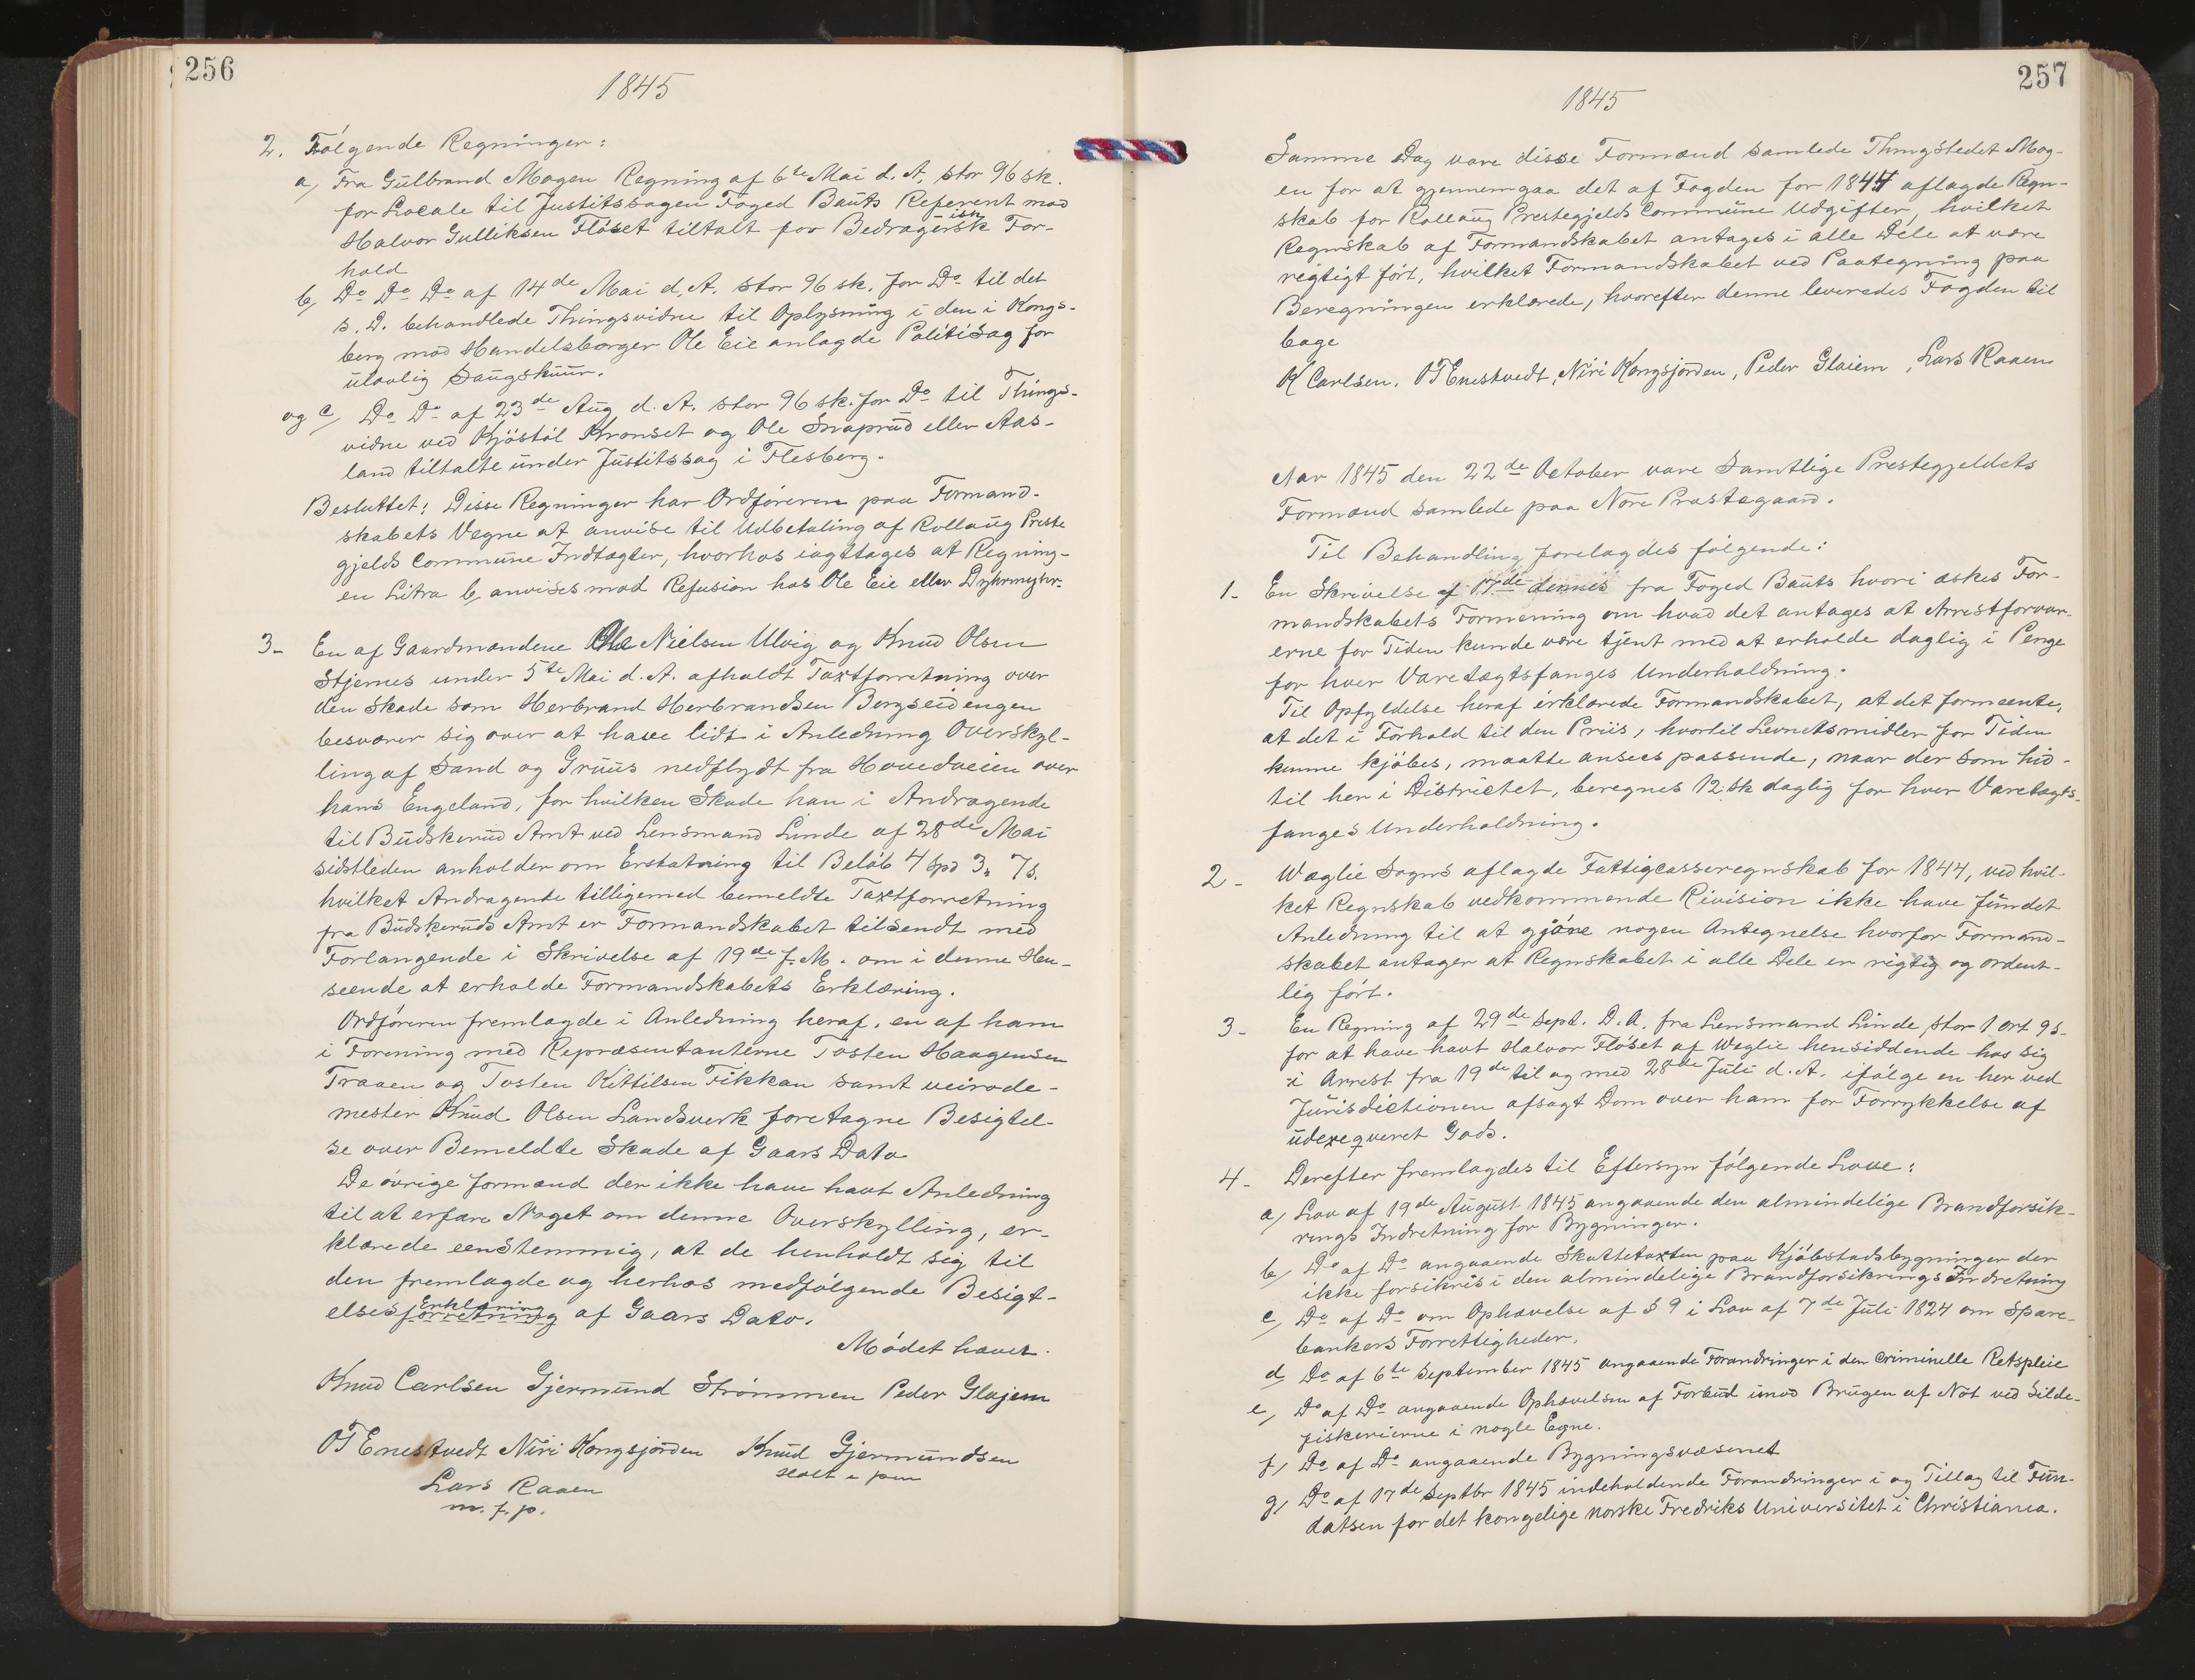 256
1845
2. Følgende Regninger:
a, Fra Gulbrand Mogen Regning af 6te Mai d. A. stor 96 sk.
for Locale til Justitssagen Foged Bauts Referent mod
Halvor Gulliksen Flåset tiltalt for Bedragerisk For-
hold
b, Do Do Do af 14de Mai d. A. stor 96 sk. for Do til det
s. D. behandlede Thingsvidne til Oplysning i den i Kongs-
berg mod Handelsborger Ole Eie anlagde Politisag for
ulovlig Saugskuur.
og c, Do Do af 23de Aug d. A. stor 96 sk. for Do til Things-
vidne ved Kjöstöl Kronset og Ole Snaprud eller Aas-
land tiltalte under Justitssag i Flesberg.
Besluttet: Disse Regninger har Ordføreren paa Formand-
skabets Vegne at anvise til Udbetaling af Rollaug Preste
gjelds Commune Indtægter, hvorhos iagttages at Regning-
en Litra b, anvises mod Refusion hos Ole Eie eller
3- En af Gaardmændene Ole Nielsen Ulvig og Knud Olsen
Stjernes under 5te Mai d. A. afholdt Taxtforretning over
den Skade som Herbrand Herbrandsen Bergseidengen
besværer sig over at have lidt i Anledning Overskyl-
ling af Sand og Gruus nedflydt fra Hovedveien over
hans Engeland, for hvilken Skade han i Andragende
til Budskerud Amt ved Lensmand Linde af 28de Mai
sidstleden anholder om Erstatning til Beløb 4 Spd 3. 7 s.
hvilket Andragende tilligemed bemeldte Taxtforretning
fra Budskeruds Amt er Formandskabet tilsendt med
Forlangende i Skrivelse af 19de f. M. om i denne Hen-
seende at erholde Formandskabets Erklæring.
Ordføreren fremlagde i Anledning heraf, en af ham
i Forening med Repræsentanterne Tosten Haagensen
Traaen og Tosten Kittilsen Fikkan samt veirode-
mester Knud Olsen Landsverk foretagne Besigtel-
se over Bemeldte Skade af Gaars Dato
De øvrige formænd der ikke have havt Anledning
til at erfare Noget om denne Overskylling, er-
klærede eenstemmig, at de henholdt sig til
den fremlagde og herhos medfølgende Besigt-
elsesforretning Erklæring af Gaars Dato.
Mødet hævet.
Knud Carlsen Gjermund Strømmen Peder Glajem
OT Enestvedt Niri Kongsjorden Knud Gjermundsen
Holt i pen
Lars Raaen
m. f. p.
257
1845
Samme Dag vare disse Formænd samlede Thingstedet Mog-
en for at gjennemgaa det af Fogden for 1844 aflagde Regn-
skab for Rollaug Prestegjelds Commune Udgifter, hvilket
Regnskab af Formandskabet antages i alle Dele at være
regtigt ført, hvilket Formandskabet ved Paategning paa
Beregningen erklærede, hvorefter denne leveredes Fogden til
bage
K Carlsen, OT Enestvedt, Niri Kongsjorden, Peder Glaiem, Lars Raaen
Aar 1845 den 22de October vare Samtlige Prestegjeldets
Formænd samlede paa Nore Prestegaard.
Til Behandling forelagdes følgende:
1- En Skrivelse af 17de dennes fra Foged Bauts hvori æskes For-
mandskabets Formening om hvad det antages at Arrestforvar-
erne for Tiden kunde være tjent med at erholde daglig i Penge
for hver Varetægtsfanges Underholdning.
Til Opfyldelse heraf erklærede Formandskabet, at det formeente,
at det i Forhold til den Priis, hvortil Levnetsmidler for Tiden
kunne kjøbes, maatte ansees passende, naar der som hid-
til her i Districtet, beregnes 12 sk daglig for hver Varetægts-
fanges Underholdning.
2- Wæglie Sogns aflagde Fattigcasseregnskab for 1844, ved hvil-
ket Regnskab vedkommende Rivision ikke have fundet
Anledning til at gjøre nogen Antegnelse hvorfor Formand-
skabet antager at Regnskabet i alle Dele er rigtig og ordent-
lig ført.
3- En Regning af 29de Sept. D. A. fra Lensmand Linde stor 1 ort 9 s.
for at have havt Halvor Flåset af Wæglie hensiddende hos sig
i Arrest fra 19de til og med 28de Juli d. A. ifølge en her ved
Jurisdictionen afsagt Dom over ham for Forrykkelse af
udexeqveret Gods.
4- Derefter fremlagdes til Eftersyn følgende Love:
a, Lov af 19de August 1845 angaaende den almindelige Brandforsik-
rings Indretning for Bygninger.
b, Do af Do angaaende Skattetaxten paa Kjøbstadsbygninger der
ikke forsikris i den almindelige Brandforsikrings Indretning
c, Do af Do om Ophævelse af § 9 i Lov af 7de Juli 1824 om Spare-
bankers Forrettigheder.
d, Do af 6te September 1845 angaaende Forandringer i den Criminelle Retspleie
e, Do af Do angaaende Ophævelsen af Forbud imod Brugen af Nöt ved Silde-
fiskerierne i nogle Egne.
f, Do af Do angaaende Bygningsvæsenet
g, Do af 17de Septbr 1845 indeholdende Forandringer i og Tillæg til Fun-
datsen for det kongelige norske Fredriks Universitet i Christiania.